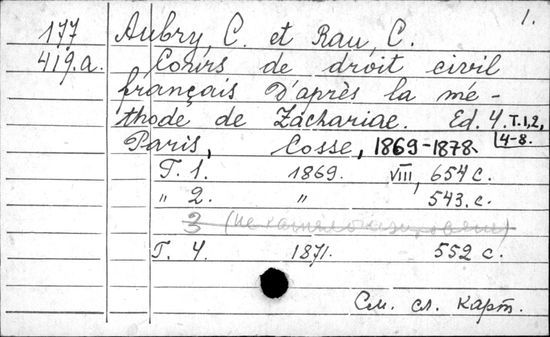 1.
177 Aubry, C. et Rau, C.
419.a. Cours de droit civil
français d'après la mé-
thode de Zachariae. Ed. 4. T.1,2,
4-8.
Paris, Cosse, 1869-1878.
T. 1. 1869. VIII, 654 с.
" 2. " 543. с.
3 (не каталогизирован)
Т. 4. 1871. 552 с.
См. сл. карт.